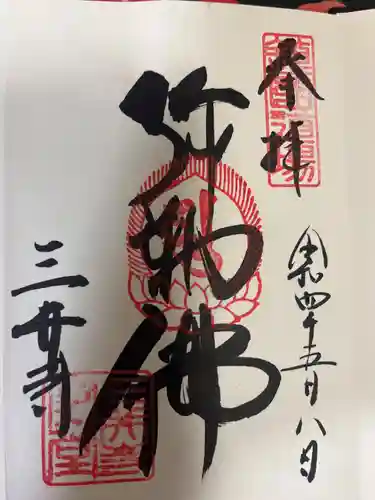 奉拝
令和四年五月八日
弥勒佛
三井寺